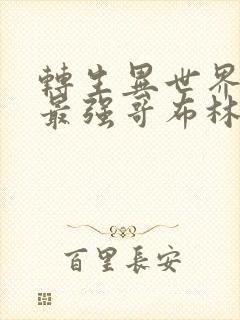 轉生異世界
最强哥布林
百里長安